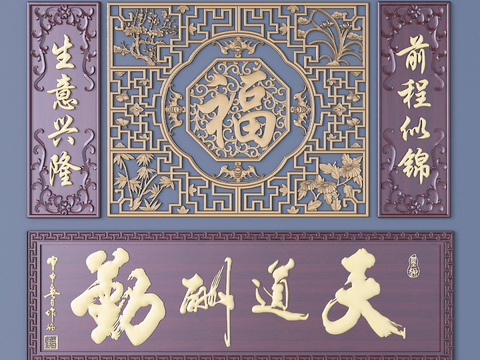 生意兴隆
福
前程似锦
天道酬勤